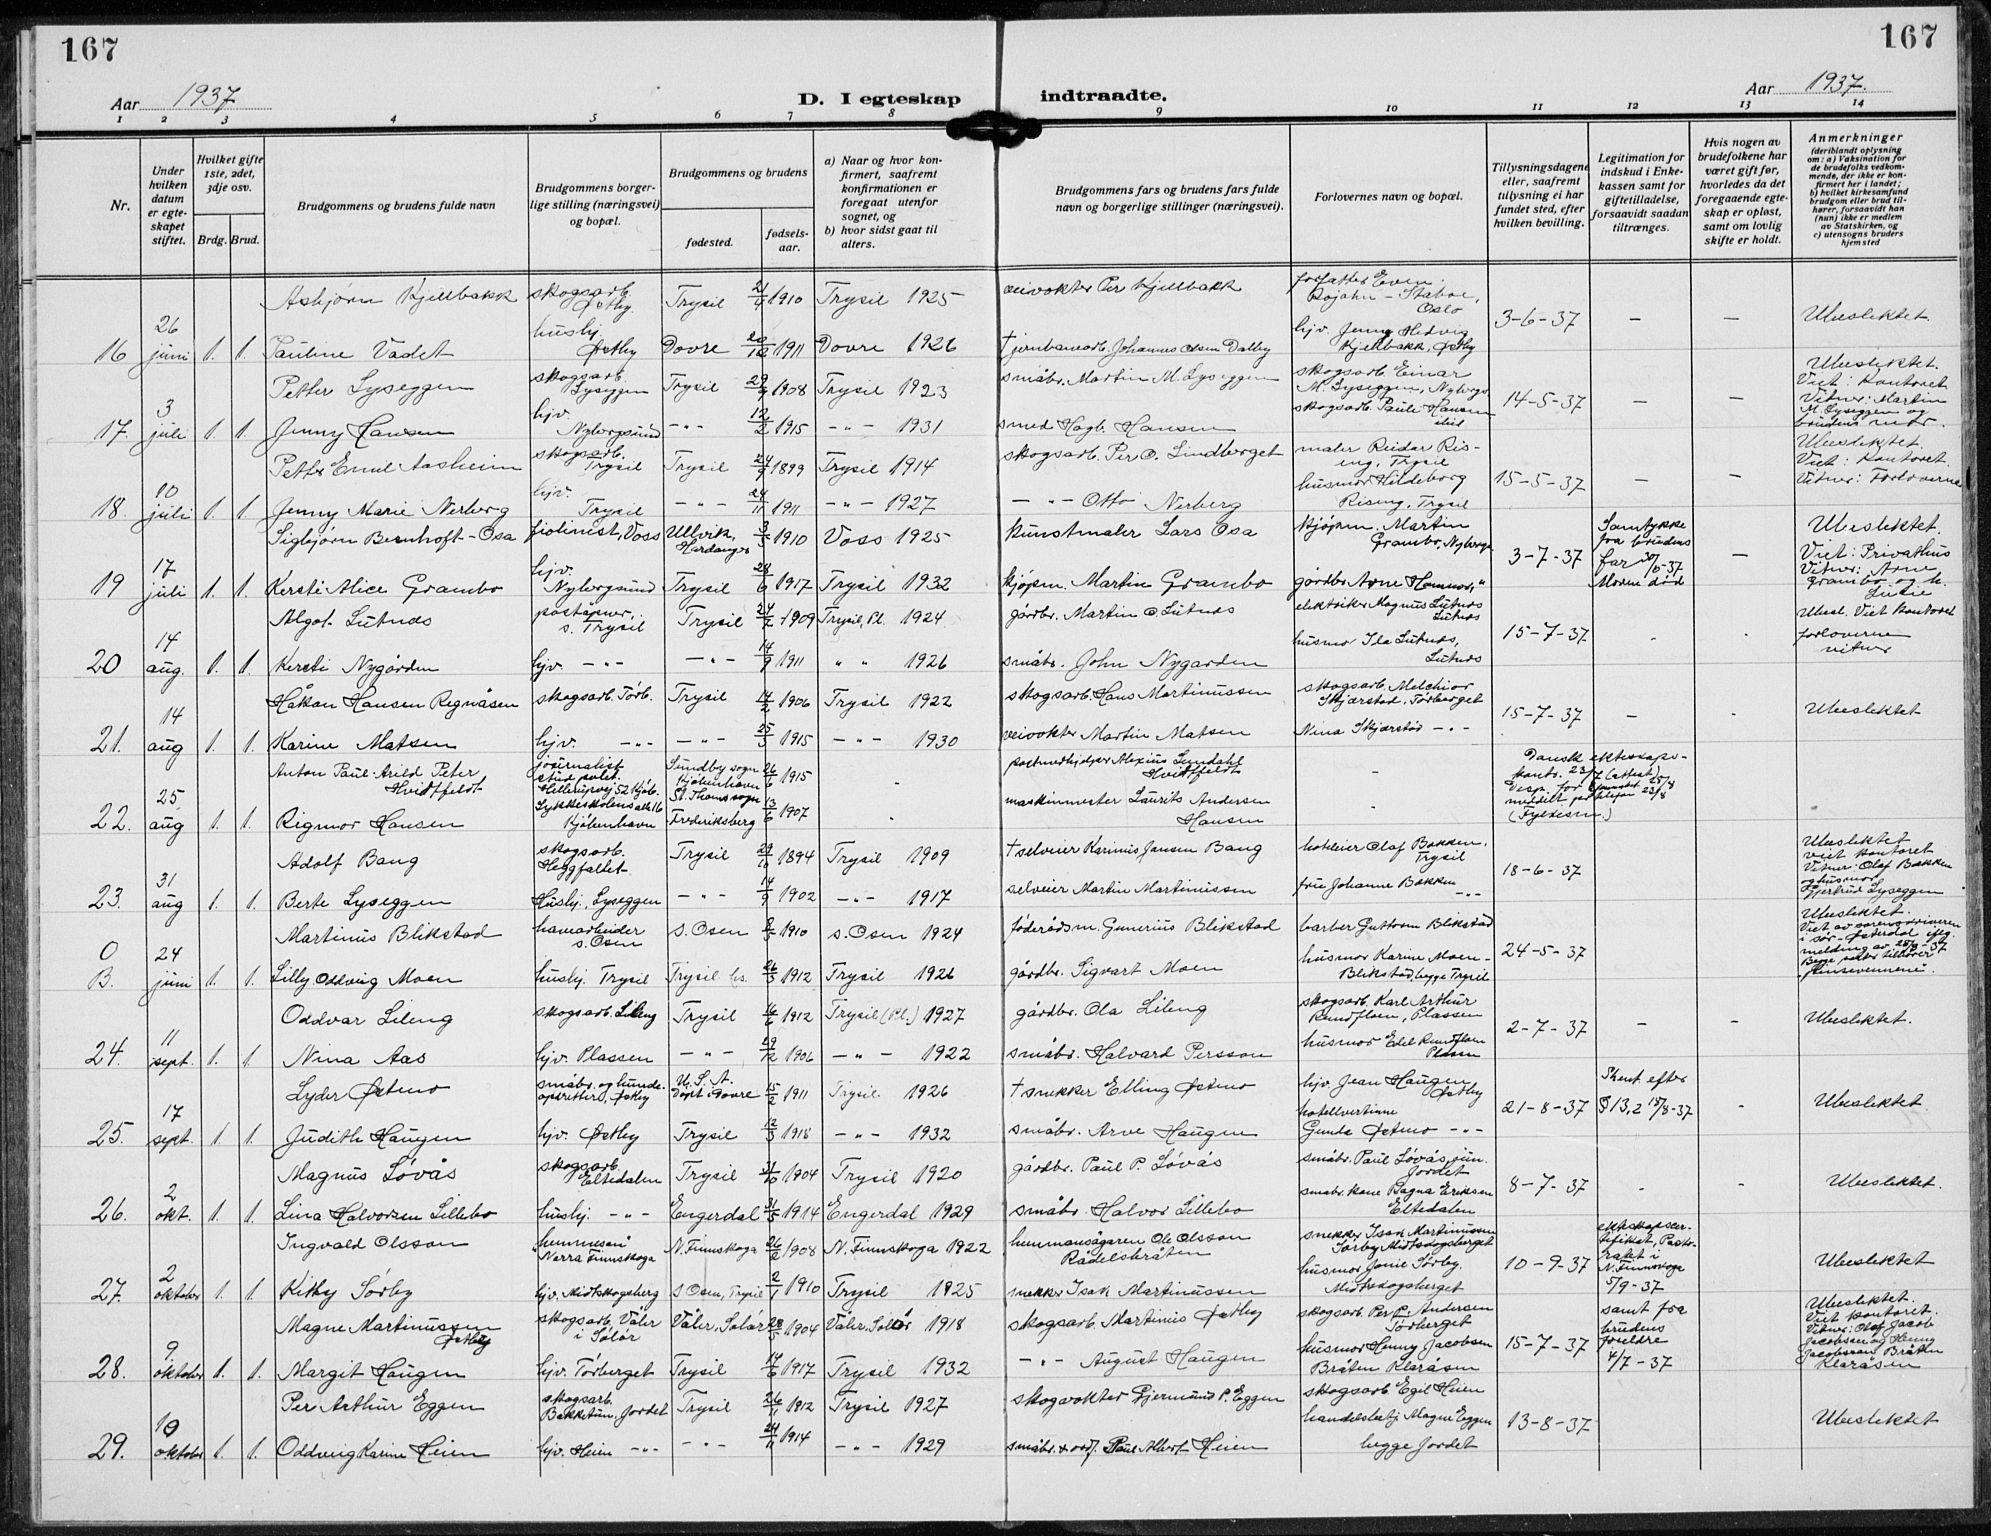 167
167
Aar 1937
D. I egteskap indtraadte.
Aar 1937.
1 2 3 4 5 6 7 8 9 10 11 12 13 14
Nr.
Under hvilken datum er egteskapet stiftet.
Hvilket gifte 1ste, 2det, 3dje osv.
Brdg. Brud.
Brudgommens og brudens fulde navn
Brudgommens borgerlige stilling (næringsvei) og bopæl.
Brudgommens og brudens
fødested.
fødselsaar.
a) Naar og hvor konfirmert, saafremt konfirmationen er foregaat utenfor sognet, og
b) hvor sidst gaat til alters.
Brudgommens fars og brudens fars fulde navn og borgerlige stillinger (næringsvei).
Forlovernes navn og bopæl.
Tillysningsdagene eller, saafremt tillysning ei har fundet sted, efter hvilken bevilling.
Legitimation for indskud i Enkekassen samt for giftetilladelse, forsaavidt saadan tiltrænges.
Hvis nogen av brudefolkene har været gift før, hvorledes da det foregaaende egteskap er opløst, samt om lovlig skifte er holdt.
Anmerkninger
(deriblandt oplysning om: a) Vaksination for de brudefolks vedkommende, der ikke er konfirmert her i landet; b) hvilket kirkesamfund brudgom eller brud tilhører, forsaavidt han (hun) ikke er medlem av Statskirken, og c) utensogns bruders hjemsted
Asbjørn Kjellbakk skogsarb. Østby. Trysil 21/4 1910 Trysil 1925 veivokter Per Kjellbakk forfatter Even Bojahn - Staboe, Oslo
16 26 juni 1. 1. Pauline Vadet husbj. Østby Dovre 20/12 1911 Dovre 1926 † jernbanearb. Johannes Olsen Dalby hjv. Jenny Hedvig Kjellbakk, Østby 3-6-37 - - Ubeslektet.
Petter Lyseggen skogsarb. Lyseggen Trysil 29/4 1908 Trysil 1923 småbr. Martin M. Lyseggen skogsarb. Einar M. Lyseggen, Nybergs.
17. 3 juli 1. 1. Jenny Hansen hjv. Nybergsund -"- 12/2 1915 -"- 1931 smed Hagb. Hansen skogsarb. Paule Hansen ibid 14-5-37 - - Ubeslektet. Viet: Kontoret Vitner: Martin M. Lyseggen og brudens mor.
Petter Emil Aasheim skogsarb. Trysil Trysil 24/9 1899 Trysil 1914 skogsarb. Per O. Lindberget maler Reidar Rising, Trysil
18. 10 juli 1. 1. Jenny Marie Nerberg hjv. Trysil -"- 24/11 1911 -"- 1927 -"- Otto Nerberg husmor Hildeborg Rising, Trysil 15-5-37 - - Ubeslektet. Viet: Kontoret. Vitner: Forloverne
Sigbjørn Bernhoft-Osa fiolinist, Voss Ullvik, Hardanger 3/5 1910 Voss 1925 kunstmaler Lars Osa kjøpm. Martin Grambo, Nybergs.
19 17 juli 1. 1. Kersti Alice Grambo hjv. Nybergsund Trysil 28/6 1917 Trysil 1932 kjøpm. Martin Grambo gårdbr. Arne " 3-7-37 Samtykke fra brudens far 30/6-37 Moren død - Ubeslektet. Viet: Privathus Vitner: Arne Grambo og h.
Algot Lutnes poståpner, s. Trysil Trysil 24/7 1909 Trysil, Pl. 1924 gårdbr. Martin O. Lutnes elektriker Magnus Lutnes Lutnes
20 14 aug. 1. 1. Kersti Nygården hjv. -"- -"- 14/9 1911 " " 1926 småbr. John Nygarden husmor Ila Lutnes, Lutnes 15-7-37 - - Ubesl. Viet kontoret forloverne vitner
Håkan Hansen Regnåsen skogsarb. Tørb. Trysil 14/2 1906 Trysil 1922 skogsarb. Hans Martinussen skogsarb. Melchior Skjærstad, Tørberget
21. 14 aug 1. 1. Karine Matsen hjv. -"- -"- 25/5 1915 -"- 1930 veivokter Martin Matsen Nina Skjærstad -"- 15-7-37 - - Ubeslektet
Anton Paul Arild Peter Hvidtfeldt journalist stud.polit. Hellerupvej 52 Kjøb. Sundby sogn Kjøbenhavn 26/6 1915 - postmedhjelper Alexius Lundahl Hvidtfeldt -
22. 25 aug 1. 1. Rigmor Hansen Kjøbenhavn St. Thomas sogn Frederiksberg 13/6 1907 - maskinmester Laurits Andersen Hansen - Dansk ekteskapskontr. 23/7 (attest) meddelt per telefon 23/8
Adolf Bang skogsarb. Heggfallet Trysil 29/10 1894 Trysil 1909 † selveier Karinus Jansen Bang hoteleier Olaf Bakken, Trysil
23. 31 aug 1. 1. Berte Lyseggen Husbj. Lyseggen -"- 14/9 1902 -"- 1917 selveier Martin Martinussen frue Johanne Bakken -"- 18-6-37 Ubeslektet viet kontoret Vitner: Olaf Bakken og husmor Gjertrud Lyseggen
Martinus Blikstad havearbeider s. Osen s. Osen 8/5 1910 s. Osen 1924 føderådsm. Gunerius Blikstad barber Guttorm Blikstad
O B. 24 juni 1. 1. Lilly Oddveig Moen husbj. Trysil Trysil hs. 26/3 1912 Trysil 1926 gårdbr. Sigvart Moen husmor Karine Moen-Blikstad, begge Trysil 24-5-37 Ubeslektet. Viet av sorenskriveren i Sør-Østerdal iflg. melding av 25/8-37 Begge parter tilhører pinsevennene.
Oddvar Lileng skogsarb. Lileng Trysil 16/6 1912 Trysil (Pl.) 1927 gårdbr. Ola Lileng skogsarb. Karl Arthur Rundfloen, Plassen
24. 11 sept. 1. 1. Nina Aas hjv. Plassen -"- 29/12 1906 -"- 1922 småbr. Halvard Persson husmor Edel Rundfloen Plassen 2-7-37 - - Ubeslektet.
Lyder Østmo småbr. og hundeoppdretter, Østby U.S.A. Døpt i Dovre 15/2 1911 Trysil 1926 † snekker Elling Østmo hjv. Jean Haugen Østby
25. 17 sept. 1. 1. Judith Haugen hjv. Østby Trysil 12/3 1918 -"- 1932 småbr. Arve Haugen hotellvertinne Gunda Østmo -"- 21-8-37 Skent efter § 13,2 18/8-37 - Ubeslektet
Magnus Løvås skogsarb. Eltedalen Trysil 31/10 1904 Trysil 1920 gårdbr. Paul P. Løvås småbr. Paul Løvås jun. Jordet
26. 2 okt. 1. 1. Lina Halvorsen Lillebo husbj. -"- Engerdal 31/5 1914 Engerdal 1929 småbr. Halvor Lillebo småbr. kone Ragna Eriksen Eltedalen 8-7-37 - - Ubeslektet.
Ingvald Olsson "hemmesøn" Norra Finnskoga N. Finnskoga 26/2 1908 N. Finnskoga 1922 hemmansägaren Ole Olsson Rådelsbråten snekker Isak Martinussen Sørby Midtskogsberget
27. 2 oktober 1. 1. Kitty Sørby hjv. Midtskogsberg s Osen, Trysil 2/1 1910 Trysil 1925 snekker Isak Martinussen husmor Jonie Sørby. Midtskogsberget 10-9-37 ekteskapscertifikat, Pastoratet i N. Finnskoga 5/9-37 Ubeslektet
Magne Martinussen Østby skogsarb. Våler i Solør Våler, Solør 28/5 1904 Våler, Solør 1918 skogsarb. Martinius Østby skogsarb. Per P. Andersen Tørberget
28. 9 oktober 1. 1. Margit Haugen hjv. Tørberget Trysil 14/6 1917 Trysil 1932 -"- August Haugen husmor Henny Jacobsen Bråten Klaråsen 15-7-37 samt. fra brudens foreldre 4/7-37 Ubeslektet. Viet kontoret. Vitner: Olaf Jacob Jacobsen og Henny Jacobsen Bråten Klaråsen
Per Arthur Eggen skogsarb. Bakketun, Jordet Trysil 26/11 1912 Trysil 1927 skogvokter Gjermund P. Eggen skogsarb Egil Heien
29. 10 oktober 1. 1. Oddveig Karine Heien hjv. Heien -"- -"- 24/11 1914 -"- 1929 småbr. & ordf. Paul Albert Heien handelsbetj Magne Eggen begge Jordet 13-8-37 Ubeslektet